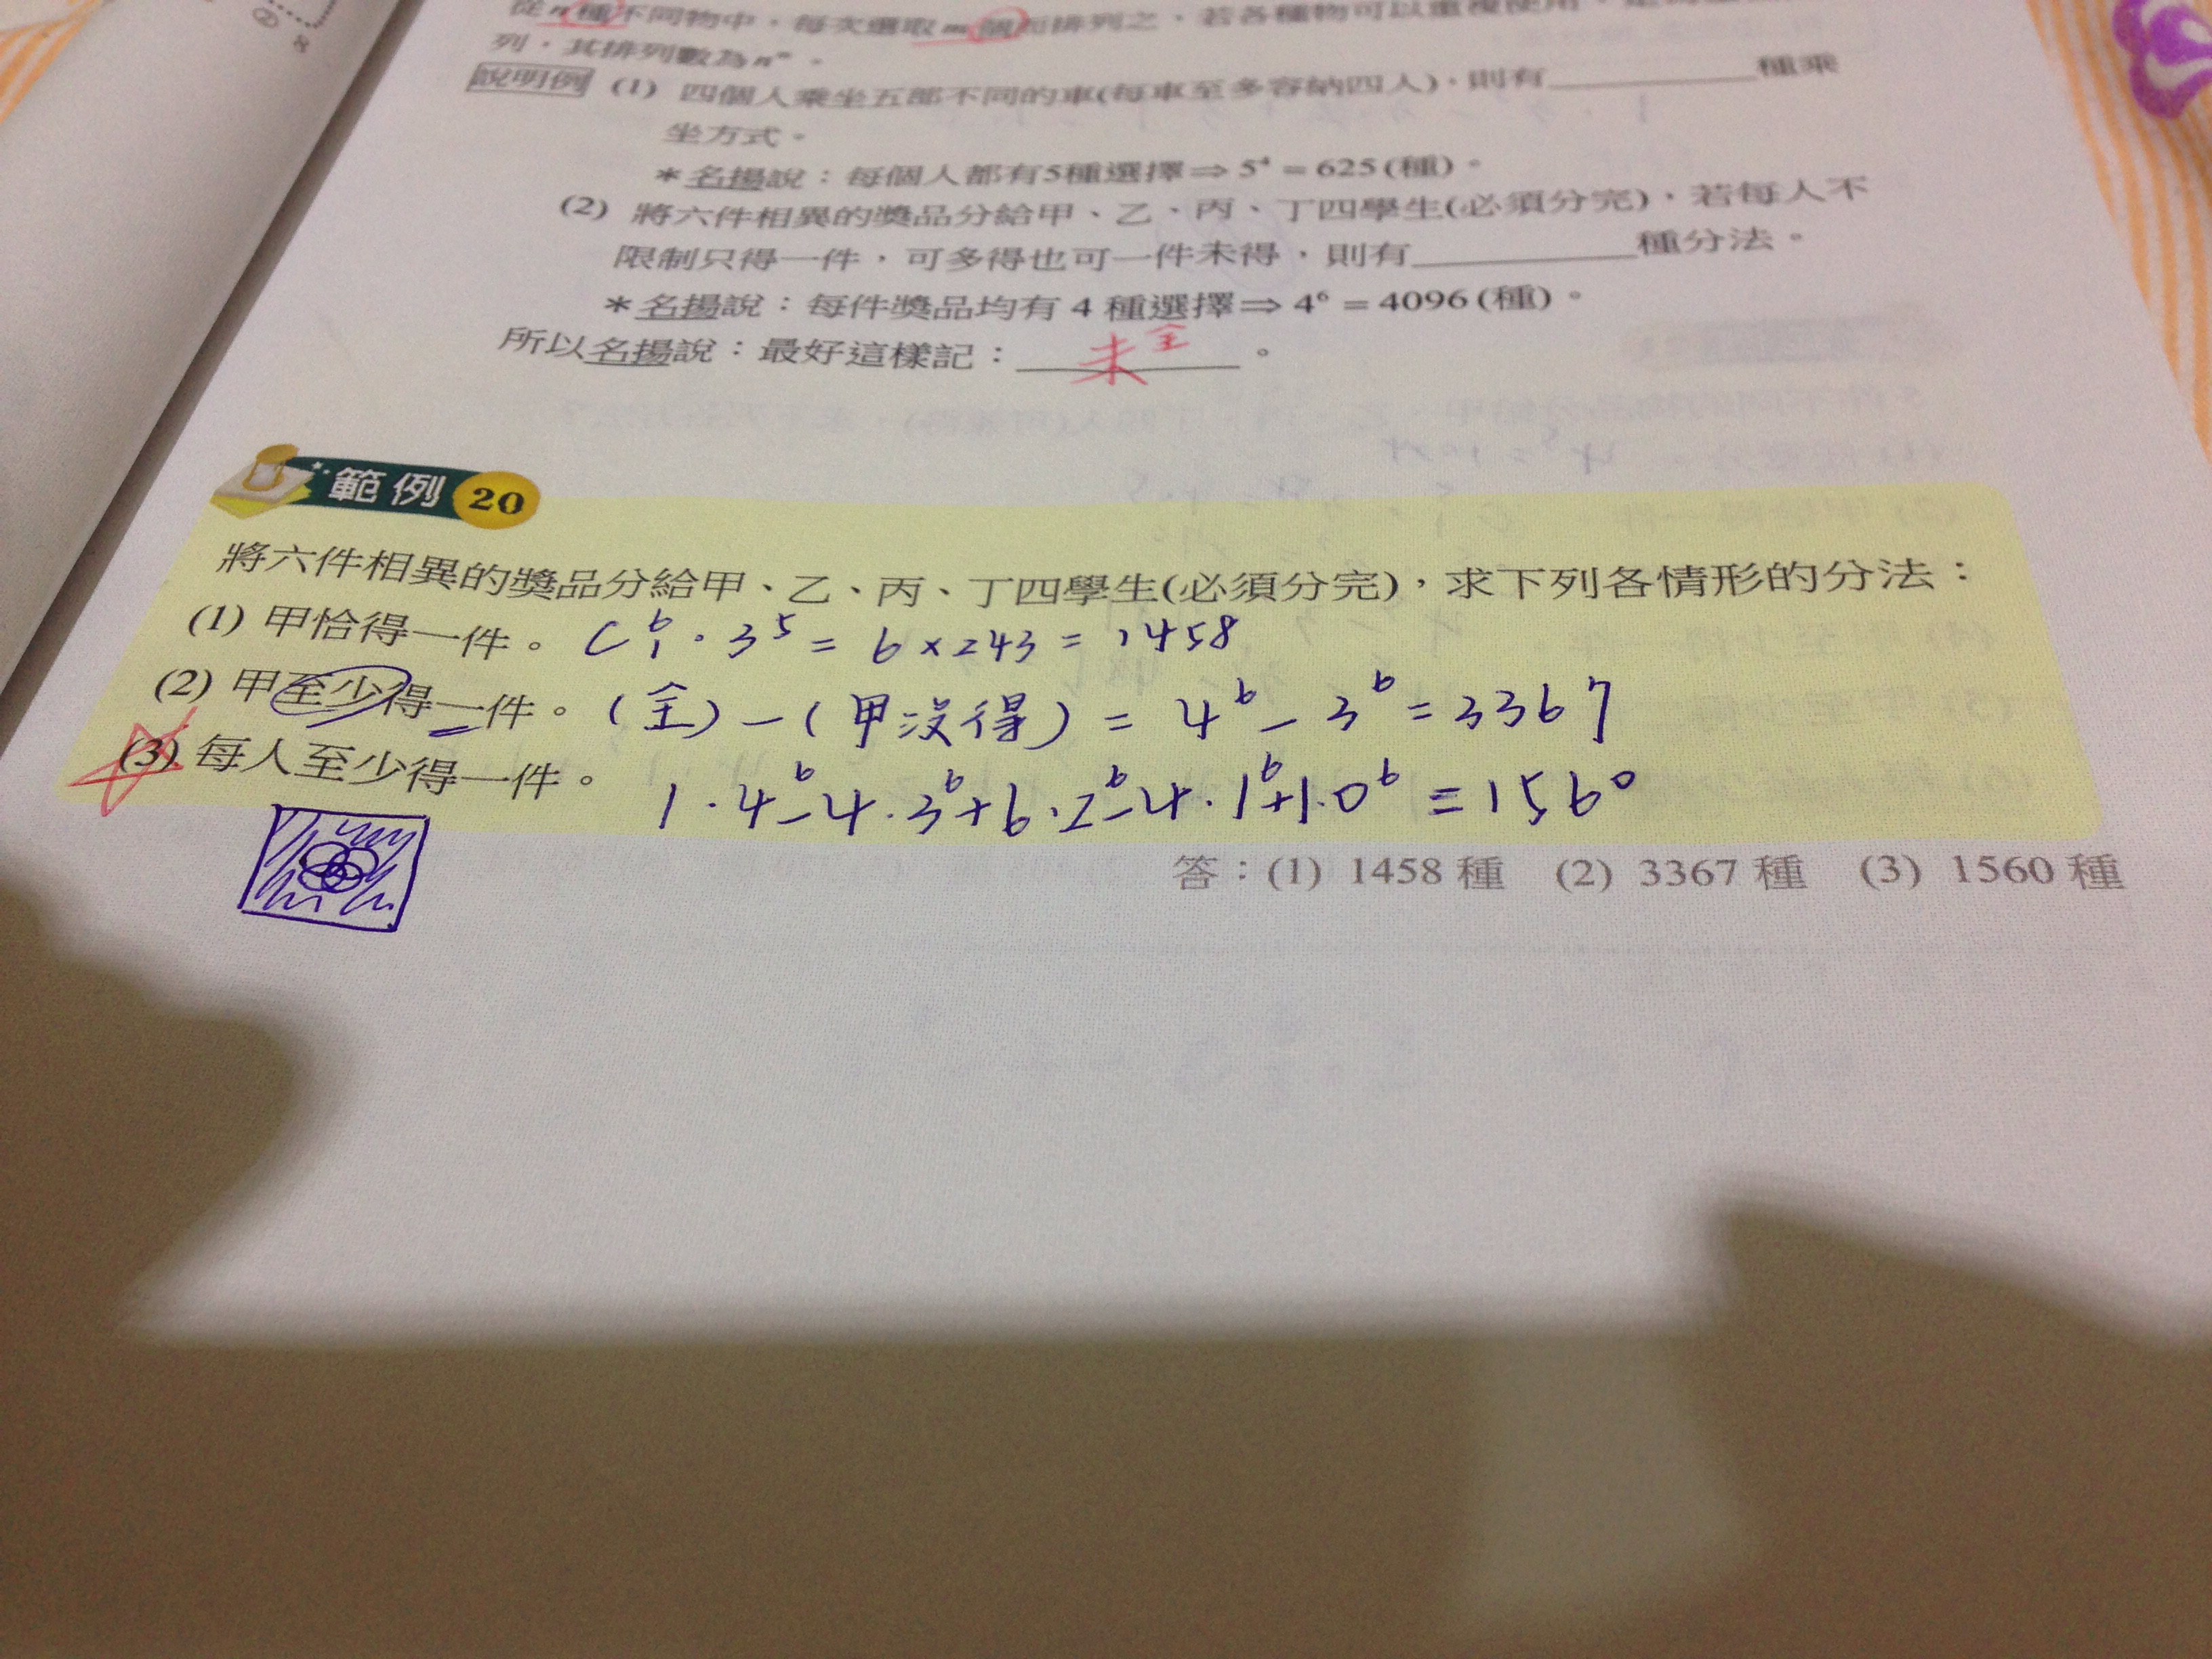 從n種不同物中，每次選取m個而排列之，若各種物可以重複使用，
列，其排列數為nᵐ。
說明例 (1) 四個人乘坐五部不同的車(每車至多容納四人)，則有＿＿＿種乘
坐方式。
＊名揚說：每個人都有5種選擇⇒5⁴＝625(種)。
(2) 將六件相異的獎品分給甲、乙、丙、丁四學生(必須分完)，若每人不
限制只得一件，可多得也可一件未得，則有＿＿＿種分法。
＊名揚說：每件獎品均有 4 種選擇⇒4⁶＝4096(種)。
所以名揚說：最好這樣記：未全。
範例 20
將六件相異的獎品分給甲、乙、丙、丁四學生(必須分完)，求下列各情形的分法：
(1) 甲恰得一件。 C⁶₁·3⁵ = 6×243 = 1458
(2) 甲至少得一件。(全)－(甲沒得) = 4⁶－3⁶ = 3367
(3) 每人至少得一件。 1·4⁶－4·3⁶+6·2⁶－4·1⁶+1·0⁶ = 1560
答：(1) 1458 種 (2) 3367 種 (3) 1560 種